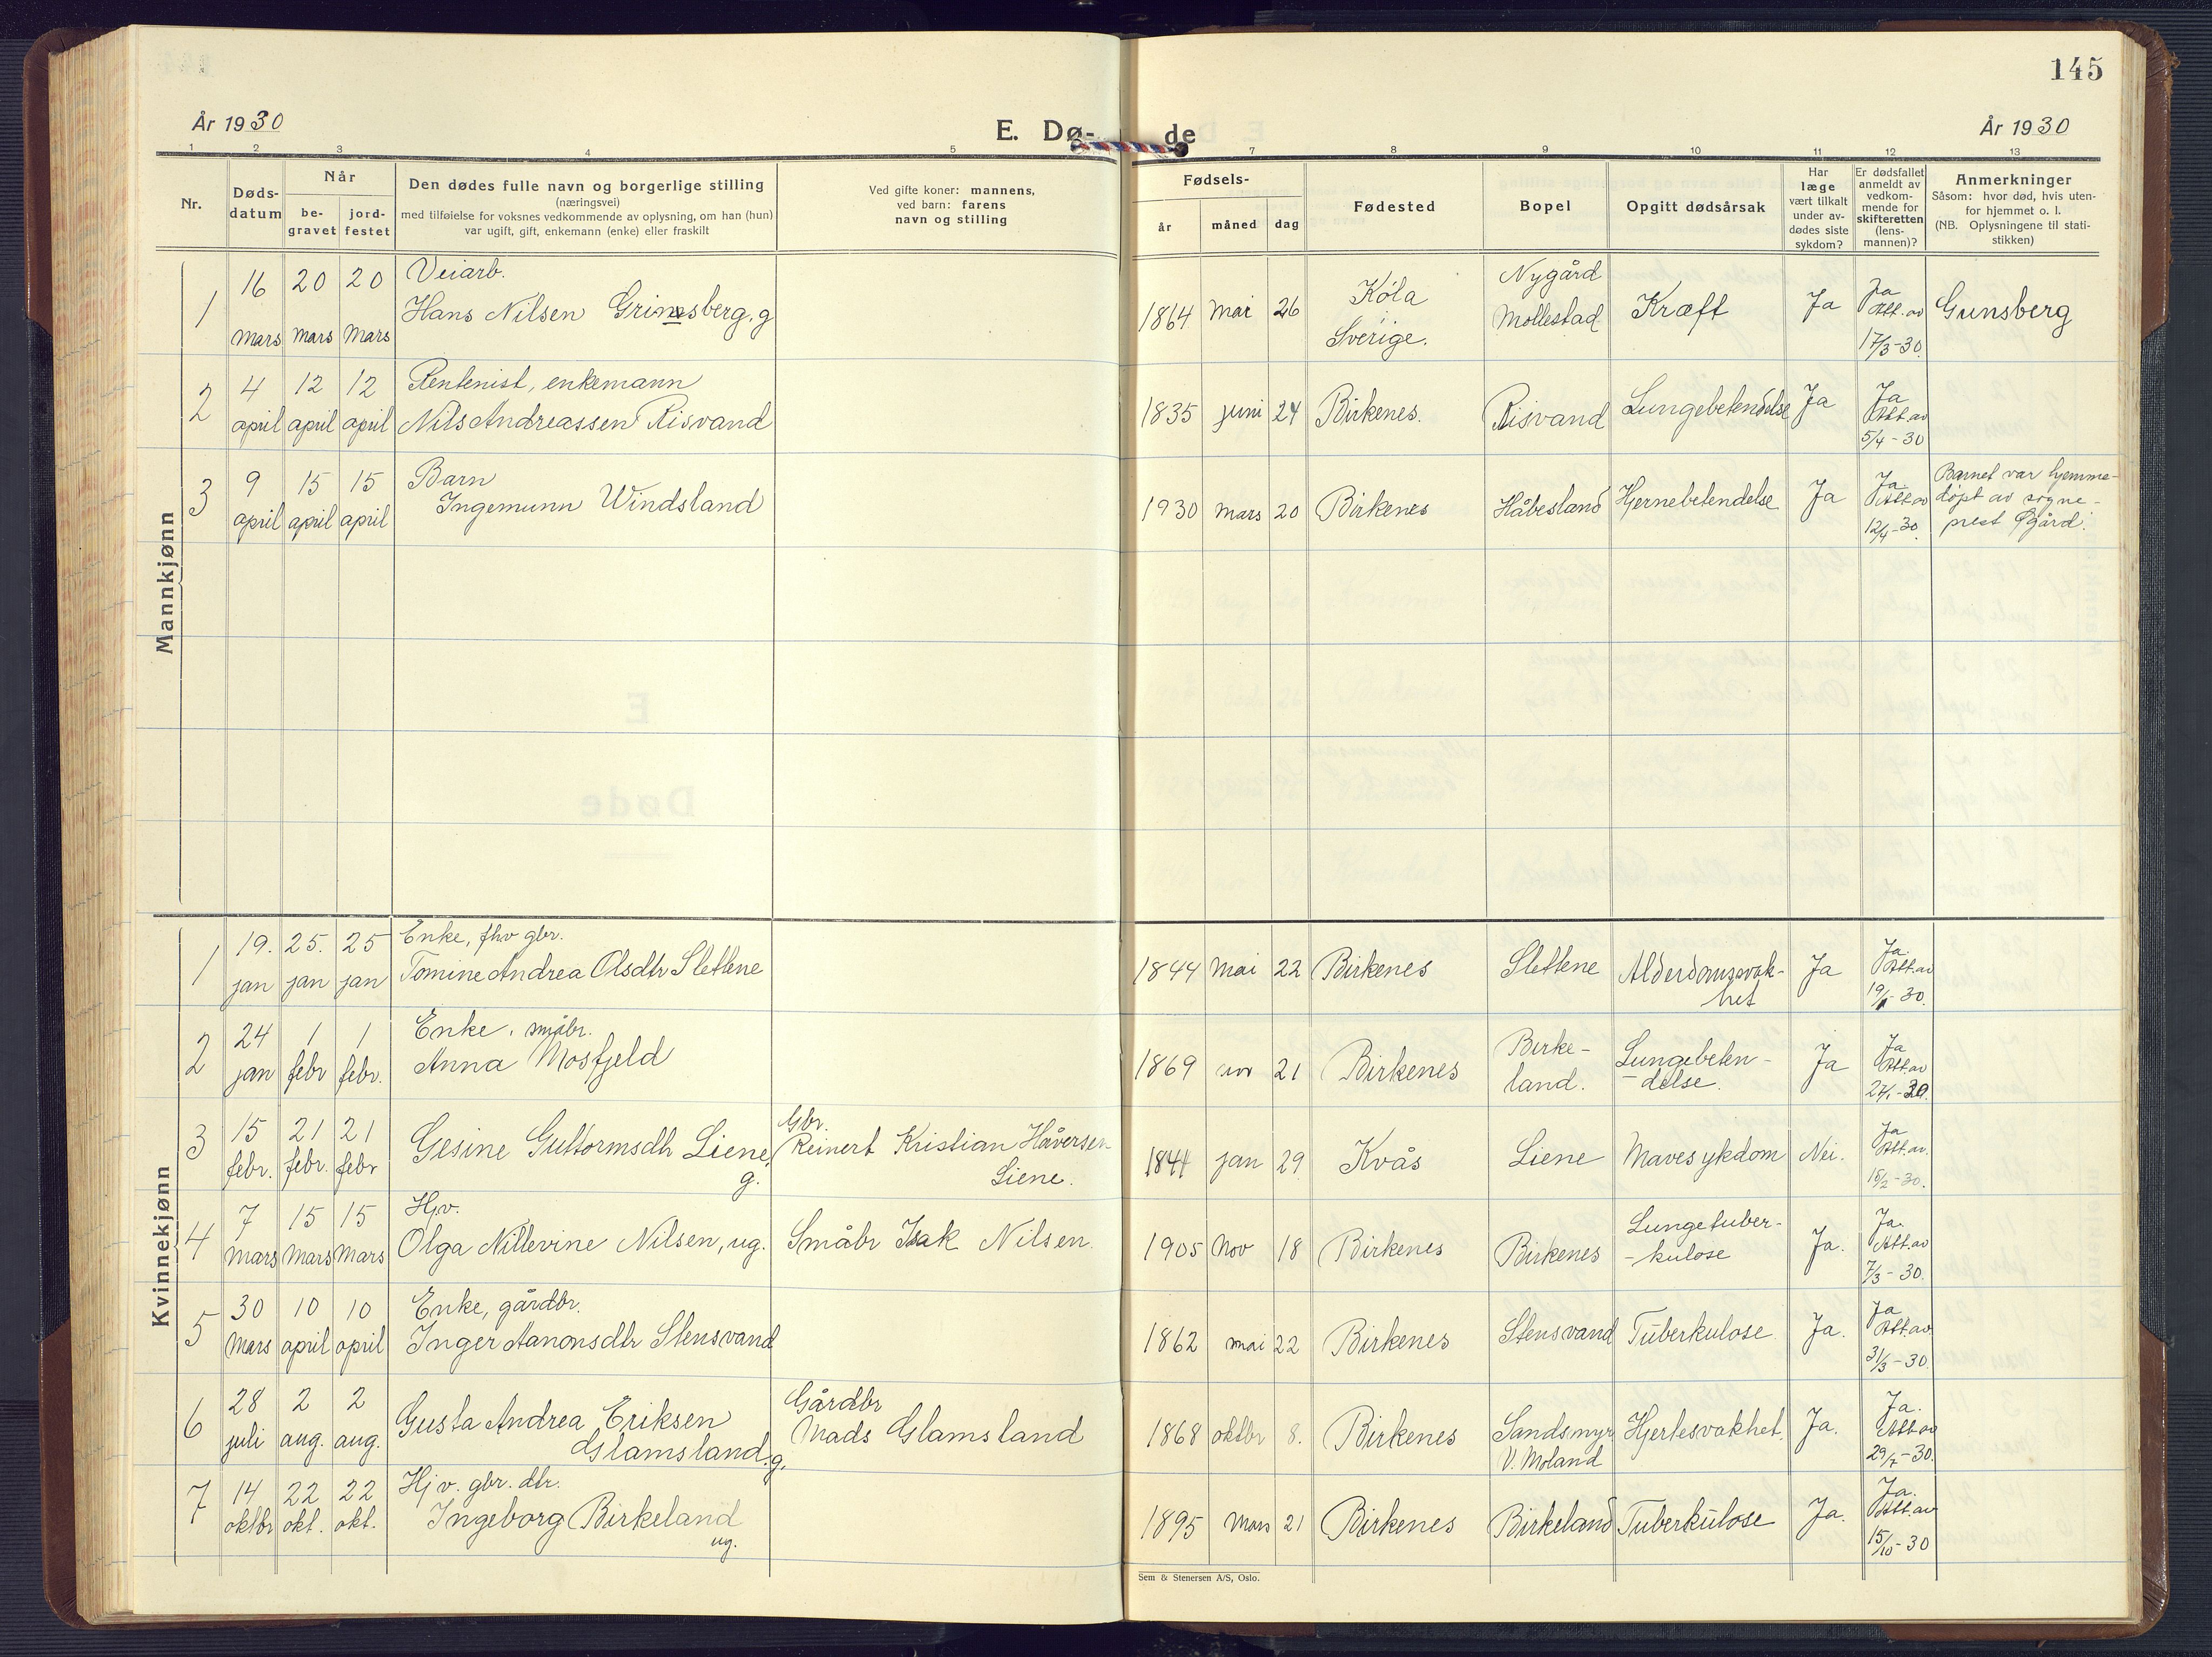 145
År 1930
E. Dø-
de
År 1930
1 2 3 4 5 7 8 9 10 11 12 13
Nr.
Døds-
datum
Når
be-
gravet
jord-
festet
Den dødes fulle navn og borgerlige stilling
(næringsvei)
med tilføielse for voksnes vedkommende av oplysning, om han (hun)
var ugift, gift, enkemann (enke) eller fraskilt
Ved gifte koner: mannens,
ved barn: farens
navn og stilling
Fødsels-
år måned dag
Fødested
Bopel
Opgitt dødsårsak
Har
læge
vært tilkalt
under av-
dødes siste
sykdom?
Er dødsfallet
anmeldt av
vedkom-
mende for
skifteretten
(lens-
mannen)?
Anmerkninger
Såsom: hvor død, hvis uten-
for hjemmet o. l.
(NB. Oplysningene til stati-
stikken)
Mannkjønn
1
16 mars
20 mars
20 Mars
Veiarb.
Hans Nilsen Grimsberg, g
1864 Mai 26
Köla
Sverige.
Nygård
Mollestad
Kræft
Ja
Ja
Att. av
17/3-30.
Gunsberg
2
4 april
12 april
12 april
Rentenist, enkemann
Nils Andreassen Risvand
1835 juni 24
Birkenes.
Risvand
Lungebetendelse
Ja
Ja
Att. av
5/4-30
3
9 april
15 april
15 april
Barn
Ingemunn Windsland
1930 mars 20
Birkenes
Håbesland
Hjernebetendelse
Ja
Ja.
Att. av
12/4-30.
Barnet var hjemme-
døpt av sogne-
prest Øgård.
Kvinnekjønn
1
19. jan
25. jan
25 jan
Enke, fhv gbr.
Tomine Andrea Olsdtr Slettene
1844 Mai 22
Birkenes
Slettene
Alderdomssvak-
het
Ja
Ja.
Att. av
19/1-30.
2
24 jan
1 febr
1 febr.
Enke, småbr.
Anna Mosfjeld
1869 nov 21
Birkenes
Birke-
land.
Lungebeten-
-delse.
Ja
Ja
Att. av
24/1-30.
3
15 febr.
21 febr.
21 febr
Gesine Guttormsdtr Liene,
g.
Gbr.
Reinert Kristian Håversen
Liene.
1844 jan 29
Kvås
Liene
Mavesykdom
Nei.
Ja
Att. av.
18/2-30.
4
7 Mars
15 Mars
15 Mars
Hjv.
Olga Nillevine Nilsen, ug.
Småbr Isak Nilsen.
1905 Nov 18
Birkenes
Birkenes
Lungetuber-
-kulose
Ja.
Ja.
Att. av
7/3-30.
5
30 Mars
10 april
10 april
Enke, gårdbr.
Inger Aanonsdtr Stensvand
1862 mai 22
Birkenes
Stensvand
Tuberkulose
Ja.
Ja
Att. av.
31/3-30.
6
28 juli
2 aug.
2 aug.
Gusta Andrea Eriksen
Glamsland. g.
Gårdbr
Mads Glamsland
1868 oktbr 8.
Birkenes
Sandsmyr
V. Moland
Hjertesvakhet.
Ja.
Ja.
Att. av
29/7-30.
7
14 oktbr
22 okt.
22 okt.
Hjv. gbr. dtr.
Ingeborg Birkeland
ug.
1895 Mars 21
Birkenes
Birkeland
Tuberkulose
Ja.
Ja.
Att. av
15/10-30
Sem & Stenersen A/S, Oslo.